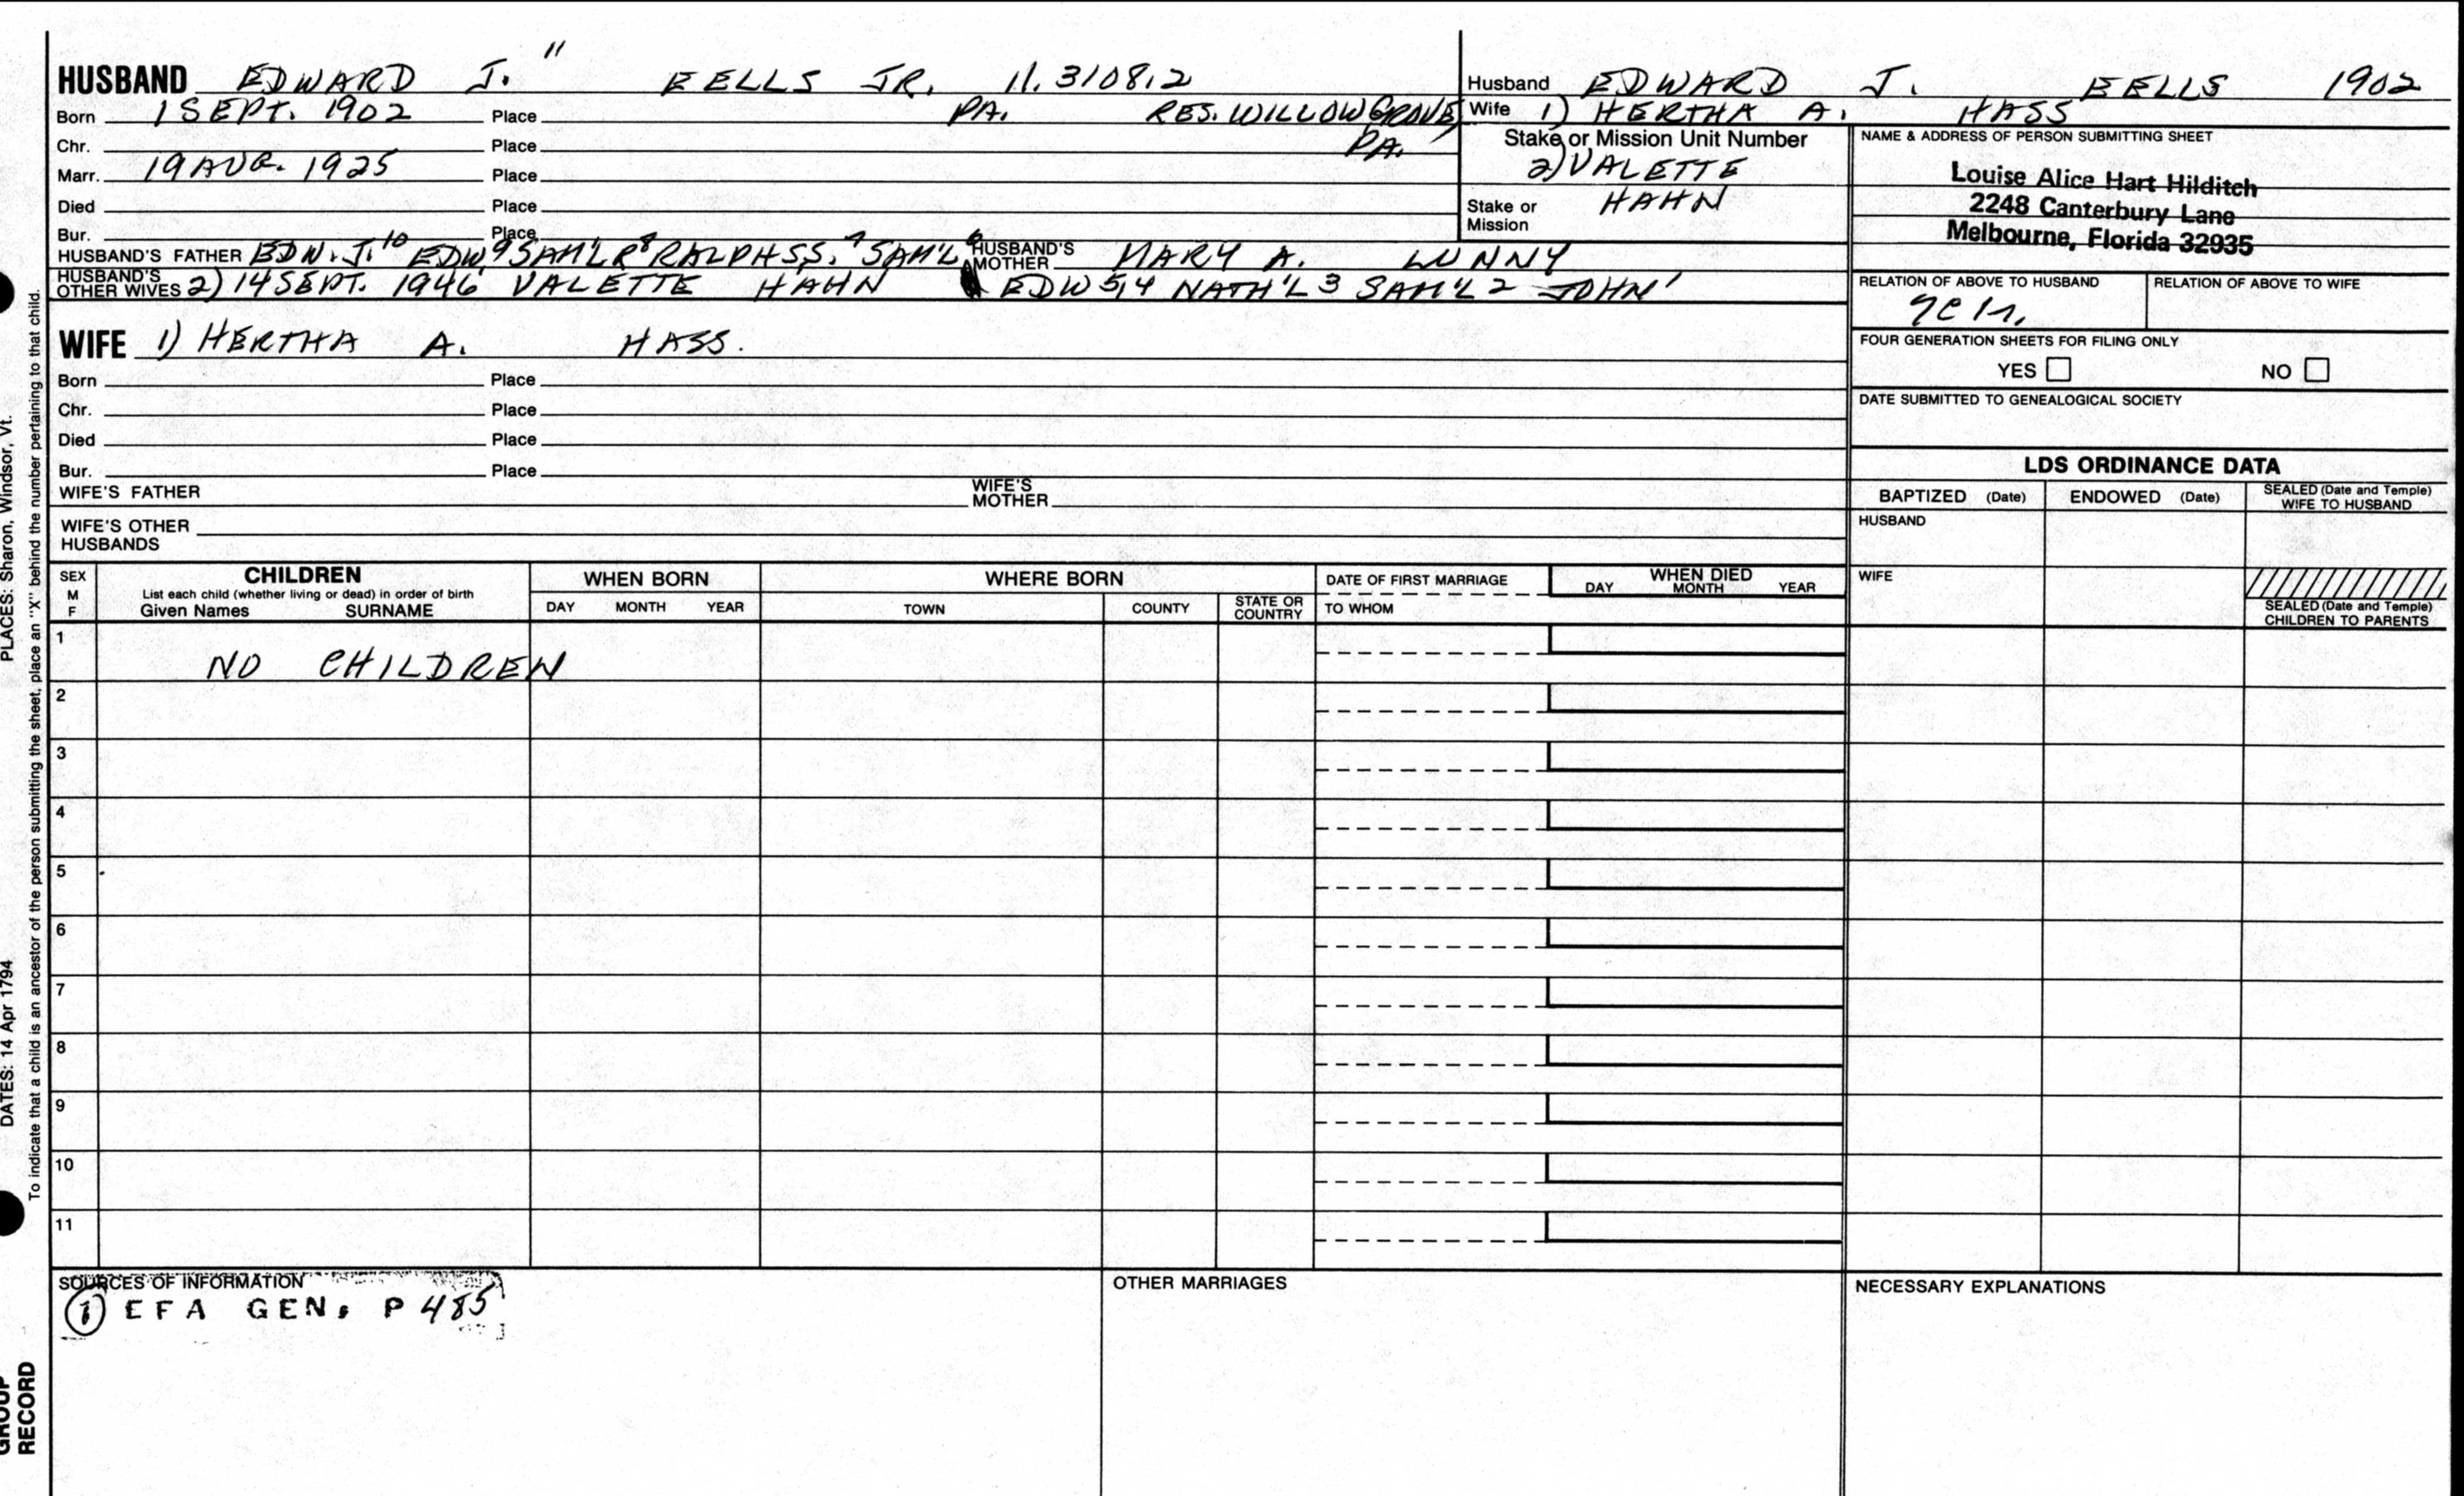 HUSBAND EDWARD J. 11 EELLS JR. 11.310812
Born 1 SEPT. 1902 Place PA. RES. WILLOW GROVE, PA.
Chr. Place
Marr. 19 AUG. 1925 Place
Died Place
Bur. Place
HUSBAND'S FATHER EDW. J. 10 EDW 9 SAM'L R 8 RALPH S S. 7 SAM'L 6 HUSBAND'S MOTHER MARY A. LUNNY
HUSBAND'S OTHER WIVES 2) 14 SEPT. 1946 VALETTE HAHN EDW 5,4 NATH'L 3 SAM'L 2 JOHN 1
Husband EDWARD J. EELLS 1902
Wife 1) HERTHA A. HASS
Stake or Mission Unit Number
2) VALETTE
HAHN
Stake or
Mission
NAME & ADDRESS OF PERSON SUBMITTING SHEET
Louise Alice Hart Hilditch
2248 Canterbury Lane
Melbourne, Florida 32935
RELATION OF ABOVE TO HUSBAND RELATION OF ABOVE TO WIFE
gen.
FOUR GENERATION SHEETS FOR FILING ONLY
YES NO
DATE SUBMITTED TO GENEALOGICAL SOCIETY
WIFE 1) HERTHA A. HASS.
Born Place
Chr. Place
Died Place
Bur. Place
WIFE'S FATHER WIFE'S MOTHER
WIFE'S OTHER
HUSBANDS
LDS ORDINANCE DATA
BAPTIZED (Date) ENDOWED (Date) SEALED (Date and Temple) WIFE TO HUSBAND
HUSBAND
WIFE
SEALED (Date and Temple)
CHILDREN TO PARENTS
SEX
M
F
CHILDREN
List each child (whether living or dead) in order of birth
Given Names SURNAME
WHEN BORN
DAY MONTH YEAR
WHERE BORN
TOWN COUNTY STATE OR COUNTRY
DATE OF FIRST MARRIAGE
TO WHOM
WHEN DIED
DAY MONTH YEAR
1
NO CHILDREN
2
3
4
5
6
7
8
9
10
11
SOURCES OF INFORMATION
① EFA GEN, P 485
OTHER MARRIAGES
NECESSARY EXPLANATIONS
PLACES: Sharon, Windsor, Vt.
DATES: 14 Apr 1794
To indicate that a child is an ancestor of the person submitting the sheet, place an "X" behind the number pertaining to that child.
GROUP
RECORD